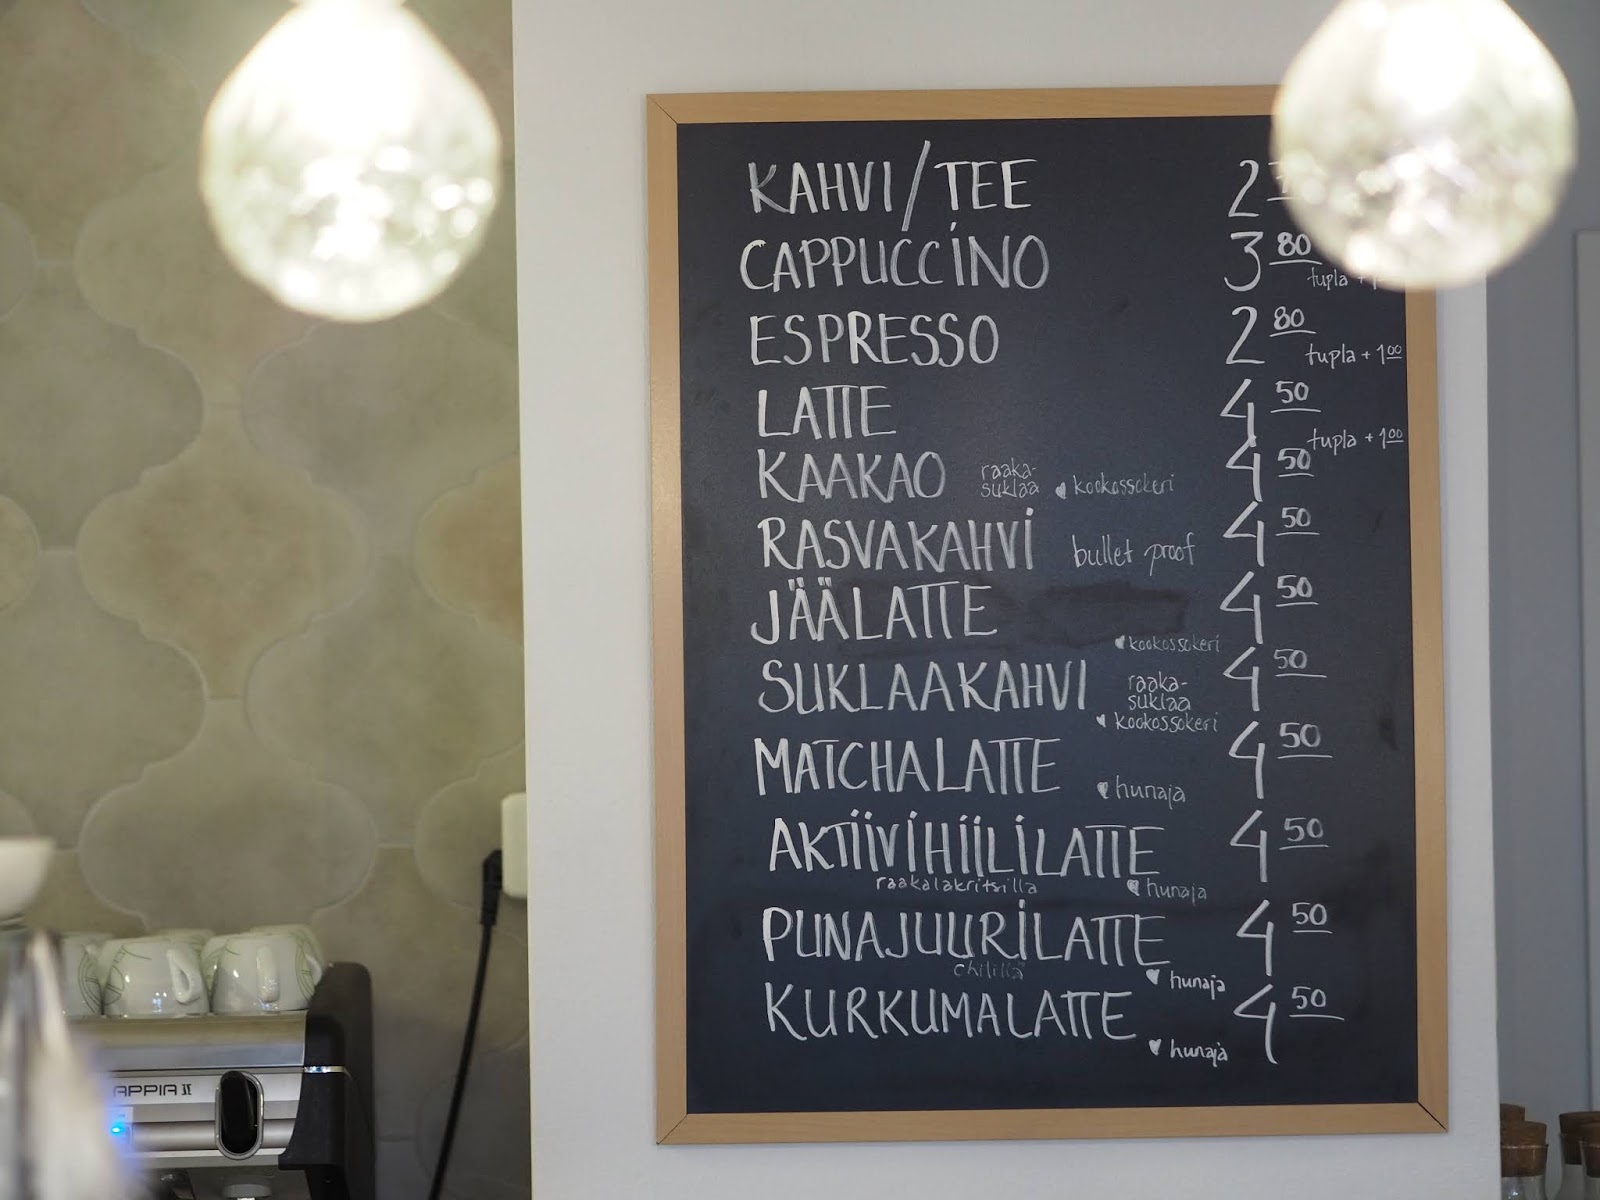 KAHVI/TEE 2
CAPPUCCINO 3 80
tupla +
ESPRESSO 2 80
tupla + 1 00
LATTE 4 50
tupla + 1 00
KAAKAO raaka-suklaa kookossokeri 4 50
RASVAKAHVI bullet proof 4 50
JÄÄLATTE 4 50
kookossokeri
SUKLAAKAHVI raaka-suklaa 4 50
kookossokeri
MATCHALATTE hunaja 4 50
AKTIIVIHIILILATTE 4 50
raakalakritsilla hunaja
PUNAJUURILATTE 4 50
chilillä hunaja
KURKUMALATTE 4 50
hunaja
APPIA II